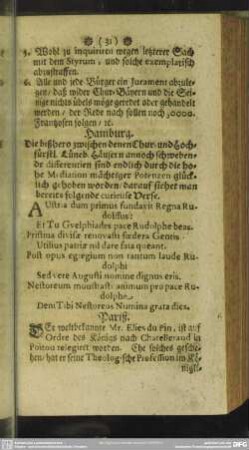 ❧ ( 31 ) ☙
5. Wohl zu inquiriren wegen letzterer Sach
mit dem Styrum, und solche exemplarisch
abzustraffen.
6. Alle und jede Bürger ein Jurament abzule-
gen/ daß wider Chur-Bäyern und die Sei-
nige nichts übels möge geredet oder gehandelt
werden/ der Rede nach sollen noch 30000.
Frantzosen folgen/ ꝛc.
Hamburg.
Die bißhero zwischen denen Chur- und Hoch-
fürstl. Lüneb. Häusern annoch schweben-
de differentien sind endlich durch die ho-
he Mediation mächtiger Potenzen glück-
lich gehoben worden/ darauf siehet man
bereits folgende curieuse Verse.
AUstra dum primus fundavit Regna Ru-
dolffus:
Et Tu Gvelphiades pace Rudolphe beas.
Pristina divisæ renovasti fœdera Gentis
Utilius patriæ nil dare fata queant.
Post opus egregium non tantum laude Ru-
dolphi
Sed vere Augusti nomine dignus eris.
Nestoreum monstrasti animum pro pace Ru-
dolphe
Dent Tibi Nestoreos Numina grata dies.
Pariß.
DEr weltbekannte Mr. Elies du Pin, ist auf
Ordre des Königs nach Chatelleraud in
Poitou relegirt worden. Ehe solches gesche-
hen/ hat er seine Theologische Profession im Kö-
nigl.